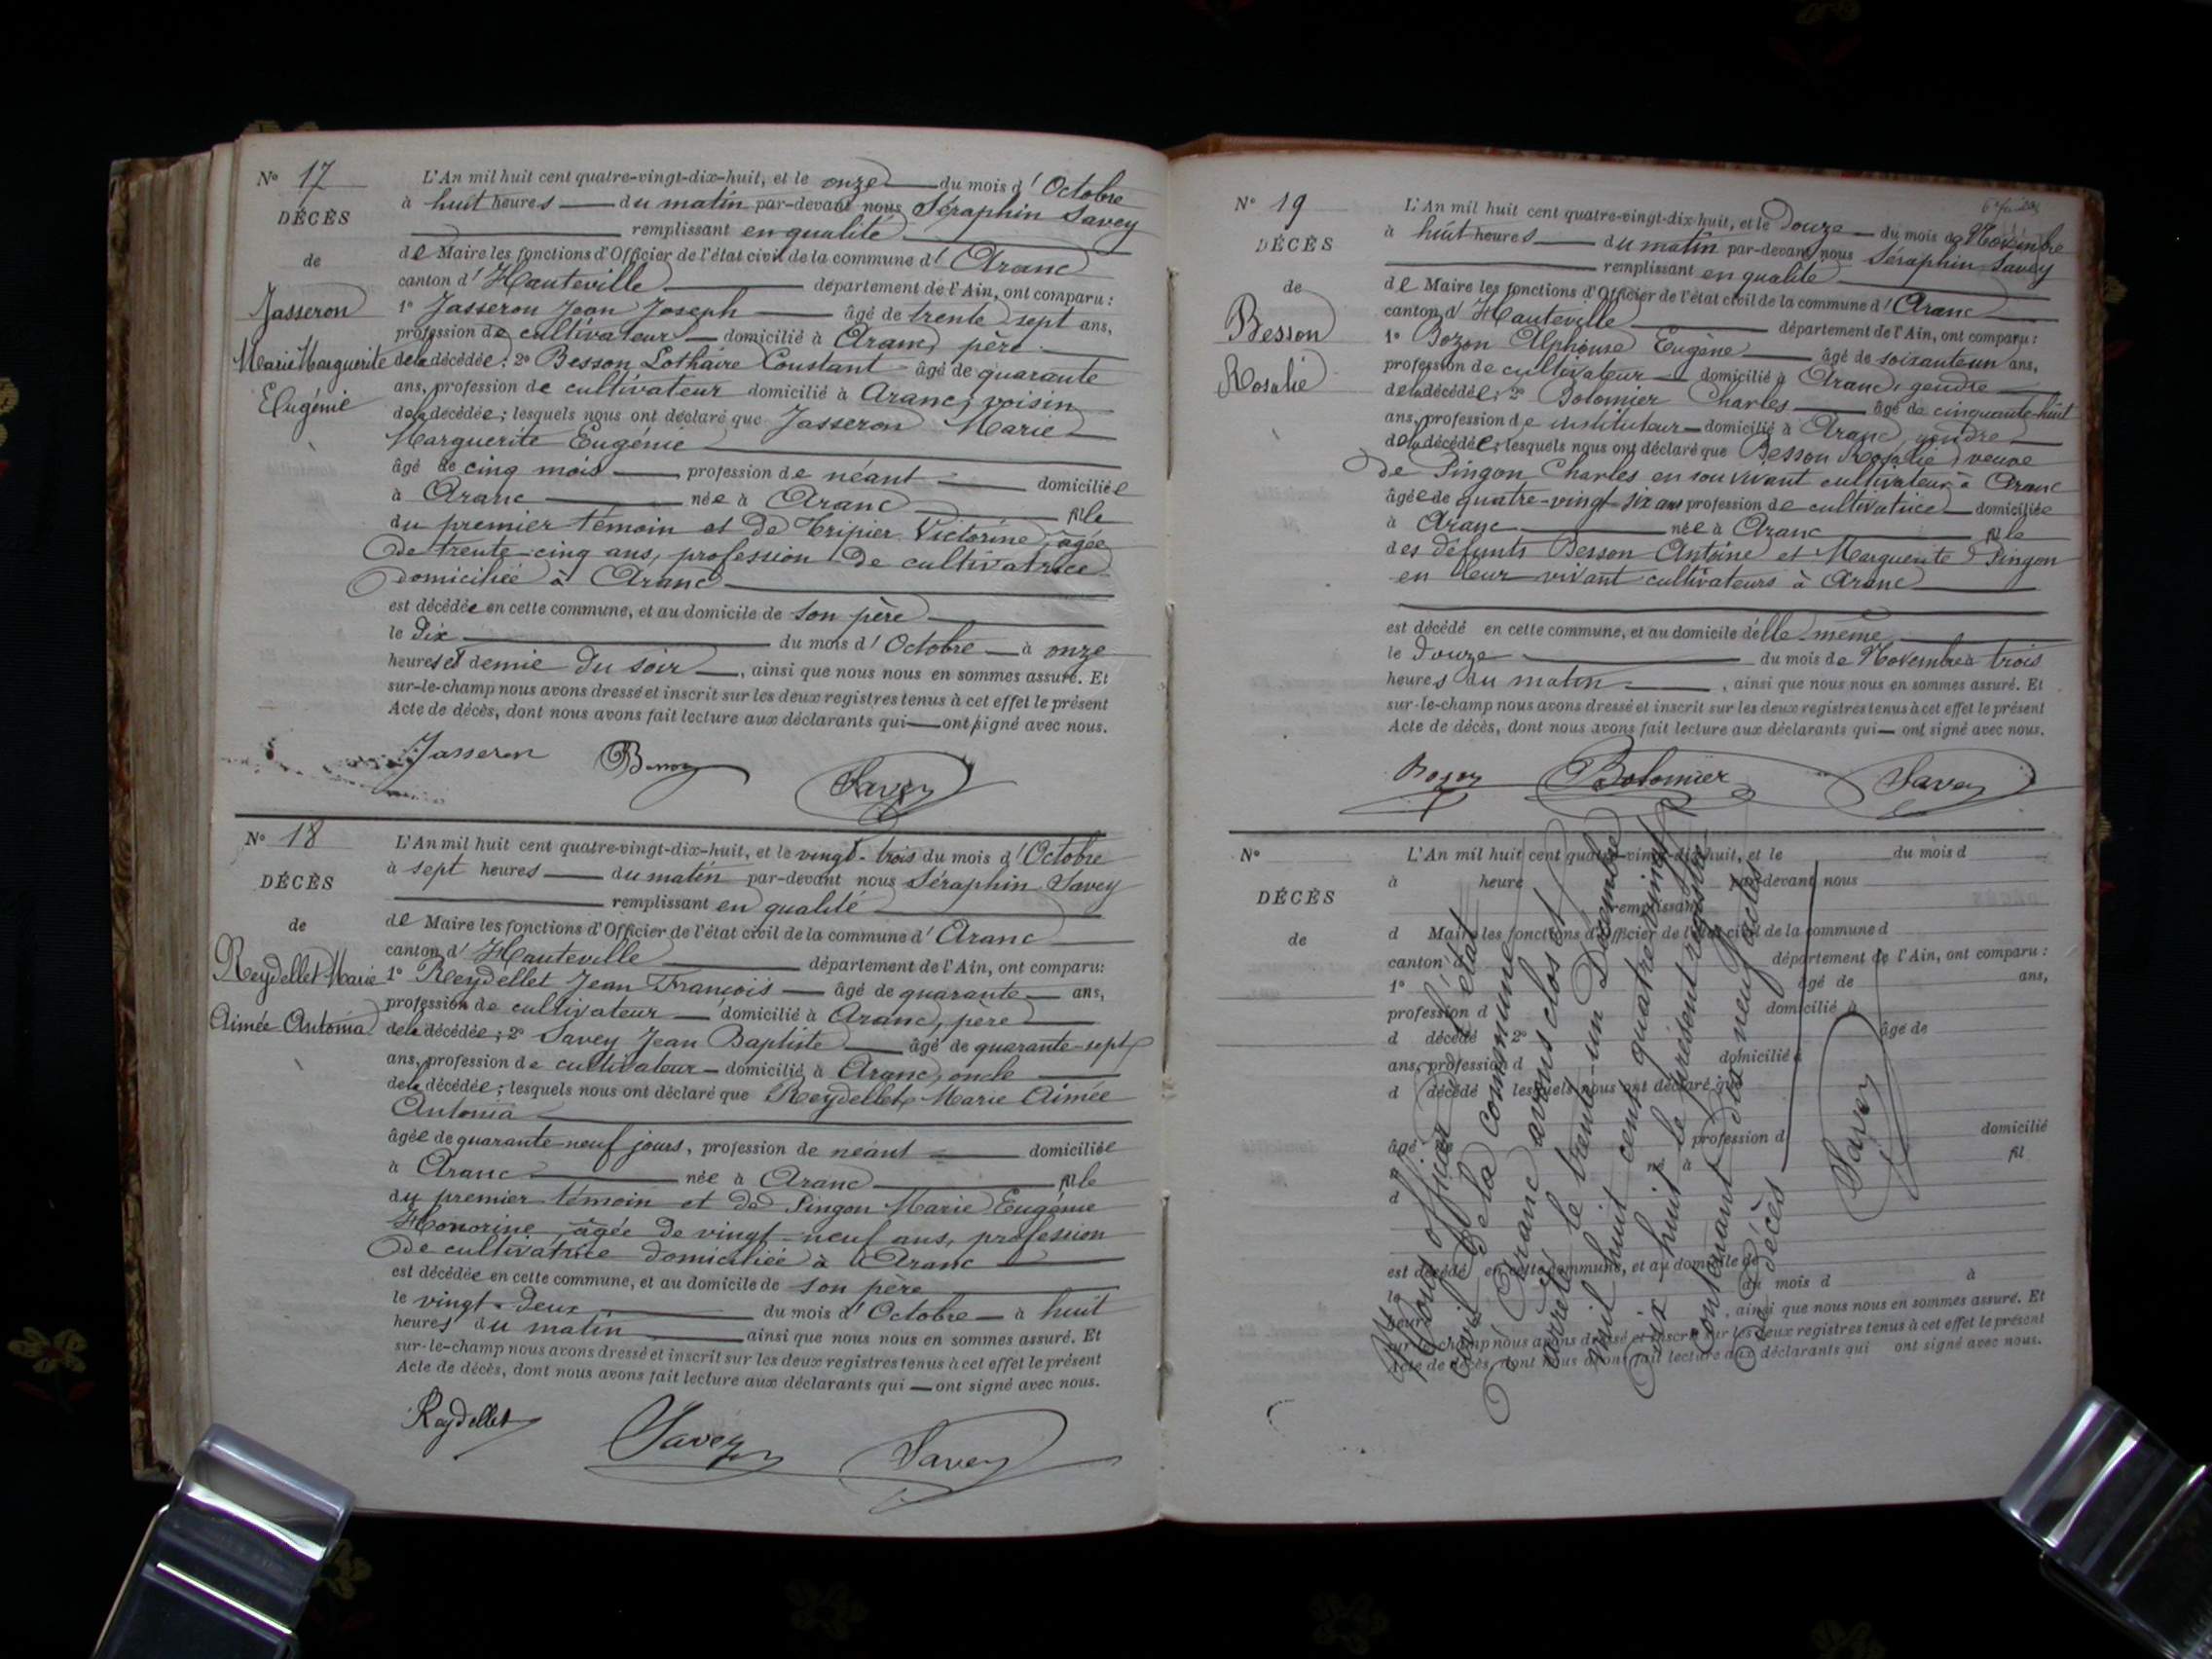 N° 17
DÉCÈS
de
Jasseron
Marie Marguerite
Eugénie
L'An mil huit cent quatre-vingt-dix-huit, et le onze du mois d'Octobre
à huit heures du matin par-devant nous Séraphin Savey
remplissant en qualité
de Maire les fonctions d'Officier de l'état civil de la commune d'Aranc
canton d'Hauteville département de l'Ain, ont comparu :
1° Jasseron Jean Joseph âgé de trente sept ans,
profession de cultivateur domicilié à Aranc, père
de la décédée ; 2° Besson Lothaire Constant âgé de quarante
ans, profession de cultivateur domicilié à Aranc, voisin
de la décédée ; lesquels nous ont déclaré que Jasseron Marie
Marguerite Eugénie
âgé de cinq mois profession de néant domiciliée
à Aranc née à Aranc fille
du premier témoin et de Tripier Victorine, âgée
de trente-cinq ans, profession de cultivatrice
domiciliée à Aranc
est décédée en cette commune, et au domicile de son père
le dix du mois d'Octobre à onze
heures et demie du soir, ainsi que nous nous en sommes assuré. Et
sur-le-champ nous avons dressé et inscrit sur les deux registres tenus à cet effet le présent
Acte de décès, dont nous avons fait lecture aux déclarants qui ont signé avec nous.
Jasseron Besson Savey
N° 18
DÉCÈS
de
Reydellet Marie
Aimée Antonia
L'An mil huit cent quatre-vingt-dix-huit, et le vingt-trois du mois d'Octobre
à sept heures du matin par-devant nous Séraphin Savey
remplissant en qualité
de Maire les fonctions d'Officier de l'état civil de la commune d'Aranc
canton d'Hauteville département de l'Ain, ont comparu:
1° Reydellet Jean François âgé de quarante ans,
profession de cultivateur domicilié à Aranc, père
de la décédée ; 2° Savey Jean Baptiste âgé de quarante-sept
ans, profession de cultivateur domicilié à Aranc, oncle
de la décédée ; lesquels nous ont déclaré que Reydellet Marie Aimée
Antonia
âgée de quarante-neuf jours, profession de néant domiciliée
à Aranc née à Aranc fille
du premier témoin et de Pingon Marie Eugénie
Honorine, âgée de vingt-neuf ans, profession
de cultivatrice domiciliée à Aranc
est décédée en cette commune, et au domicile de son père
le vingt-deux du mois d'Octobre à huit
heures du matin ainsi que nous nous en sommes assuré. Et
sur-le-champ nous avons dressé et inscrit sur les deux registres tenus à cet effet le présent
Acte de décès, dont nous avons fait lecture aux déclarants qui ont signé avec nous.
Reydellet Savey Savey
N° 19
DÉCÈS
de
Besson
Rosalie
L'An mil huit cent quatre-vingt-dix-huit, et le Douze du mois de Novembre
à huit heures du matin par-devant nous Séraphin Savey
remplissant en qualité
de Maire les fonctions d'Officier de l'état civil de la commune d'Aranc
canton d'Hauteville département de l'Ain, ont comparu :
1° Bozon Alphonse Eugène âgé de soixante un ans,
profession de cultivateur domicilié à Aranc, gendre
de la décédée ; 2° Bolomier Charles âgé de cinquante-huit
ans, profession de instituteur domicilié à Aranc, gendre
de la décédée ; lesquels nous ont déclaré que Besson Rosalie, veuve
de Pingon Charles en son vivant cultivateur à Aranc
âgée de quatre-vingt-six ans profession de cultivatrice domiciliée
à Aranc née à Aranc fille
des défunts Besson Antoine et Marguerite Pingon
en leur vivant cultivateurs à Aranc
est décédé en cette commune, et au domicile d'elle même
le Douze du mois de Novembre à trois
heures du matin, ainsi que nous nous en sommes assuré. Et
sur-le-champ nous avons dressé et inscrit sur les deux registres tenus à cet effet le présent
Acte de décès, dont nous avons fait lecture aux déclarants qui ont signé avec nous.
Bozon Bolomier Savey
N°
DÉCÈS
de
L'An mil huit cent quatre-vingt-dix-huit, et le du mois d
à heure par-devant nous
remplissant
d Maire les fonctions d'Officier de l'état civil de la commune d
canton d département de l'Ain, ont comparu :
1° âgé de ans,
profession d domicilié à
d décédé 2° âgé de
ans, profession d domicilié à
d décédé lesquels nous ont déclaré que
âgé de profession d domicilié
à né à fil
d
est décédé en cette commune, et au domicile de
le du mois d à
heure , ainsi que nous nous en sommes assuré. Et
sur-le-champ nous avons dressé et inscrit sur les deux registres tenus à cet effet le présent
Acte de décès, dont nous avons fait lecture aux déclarants qui ont signé avec nous.
Nous officier de l'état
civil de la commune
d'Aranc avons clos et
arrêté le trente-un Décembre
mil huit cent quatre vingt
dix huit le présent registre
contenant dix neuf actes
de décès
Savey